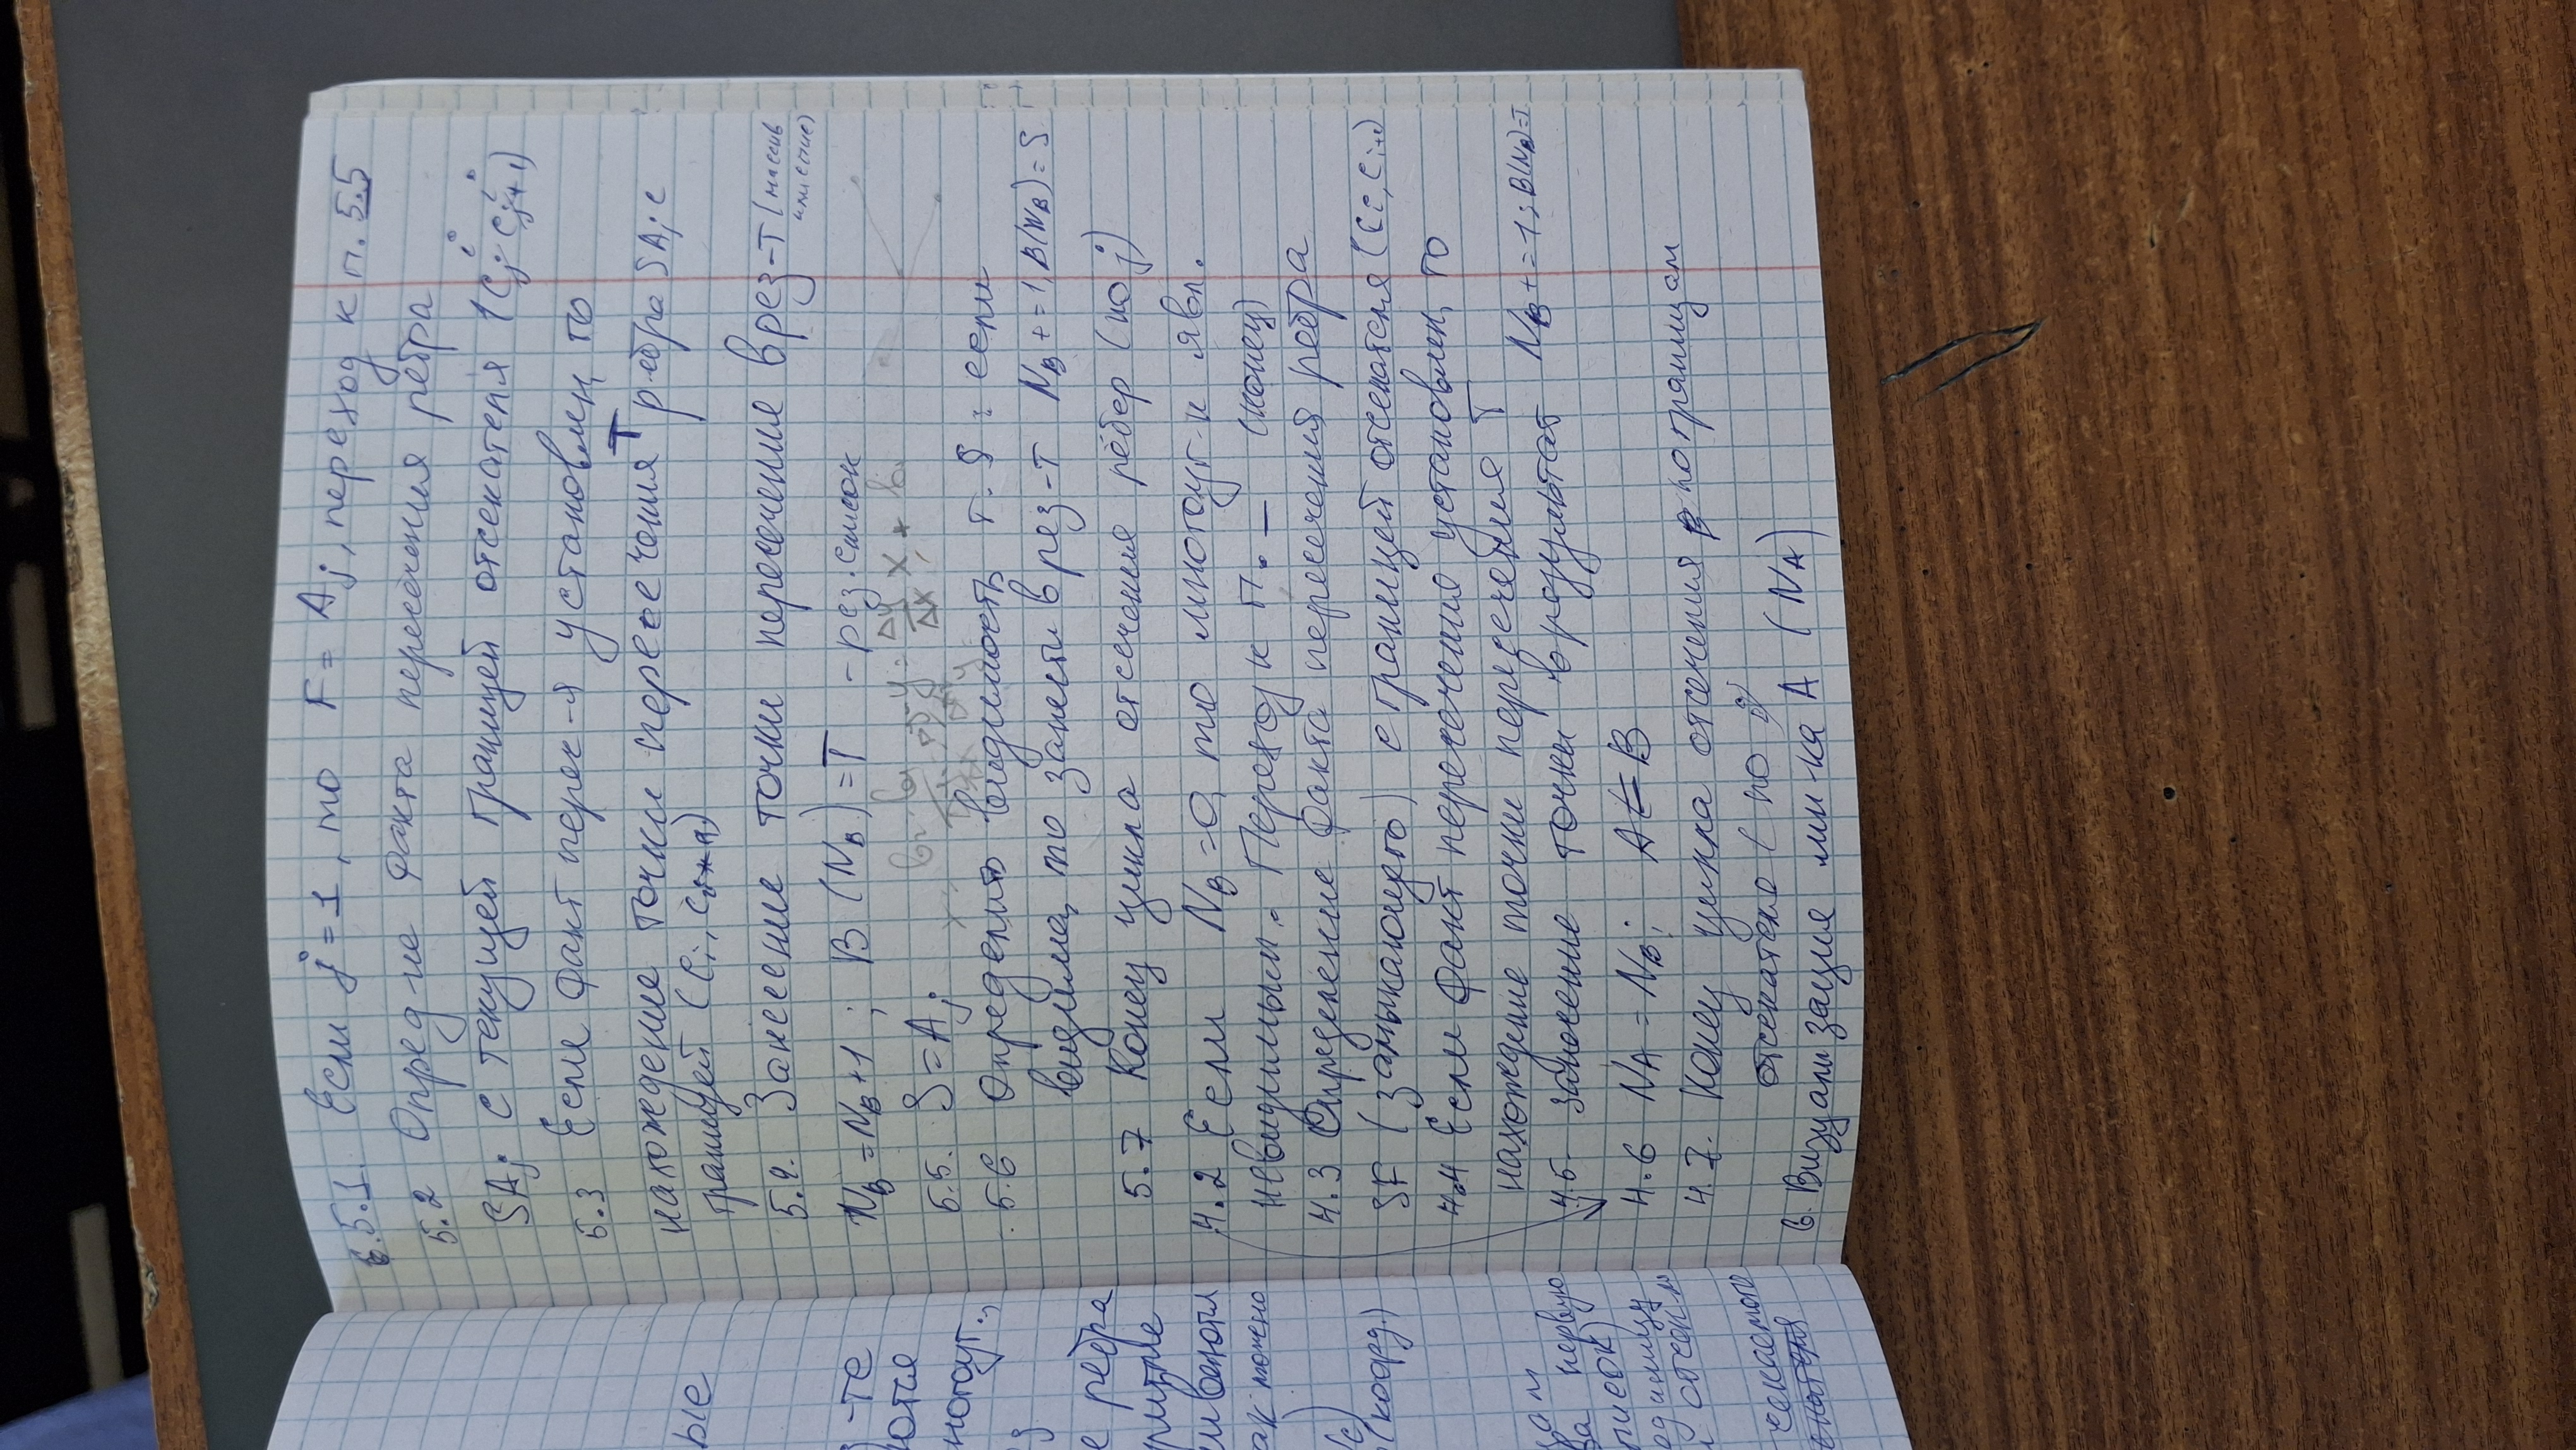 ые
-те
ются
ногоуг.,
е ребра
ак можно
(коорд.)
за первую
писок)
одиницу
5.1. Если j = 1, то F = Aj, переход к п. 5.5
5.2 Опред-ие факта пересечения ребра
SAj с текущей границей отсекателя (Cj Cj+1)
i i
5.3 Если факт перес-я установлен, то
нахождение точки пересечения T ребра SAj с
границей (Ci, Ci+1)
5.4. Занесение точки пересечения в рез-т (массив
или спис)
NB = NB+1 ; B (NB) = T - рез. список
y = Δy/Δx x + b
5.5. S = Aj
5.6 Определить видимость т. S: если
видима, то занести в рез-т NB += 1, B(NB) = S
5.7 Конец цикла отсечения рёбер (по j)
4.2 Если NB = 0, то многоуг-к явл.
невидимым. Переход к п. _ (конец)
4.3 Определение факта пересечения ребра
SF (замыкающего) с границей отсекателя (Ci, Ci+1)
4.4 Если факт пересечения установлен, то
нахождение точки пересечения T
4.5 Занесение точки в результат NB += 1; B(NB)=T
4.6 NA = NB; A = B
4.7. Конец цикла отсечения по границам
отсекателя (по i)
6. Визуализация мн-ка A (NA)